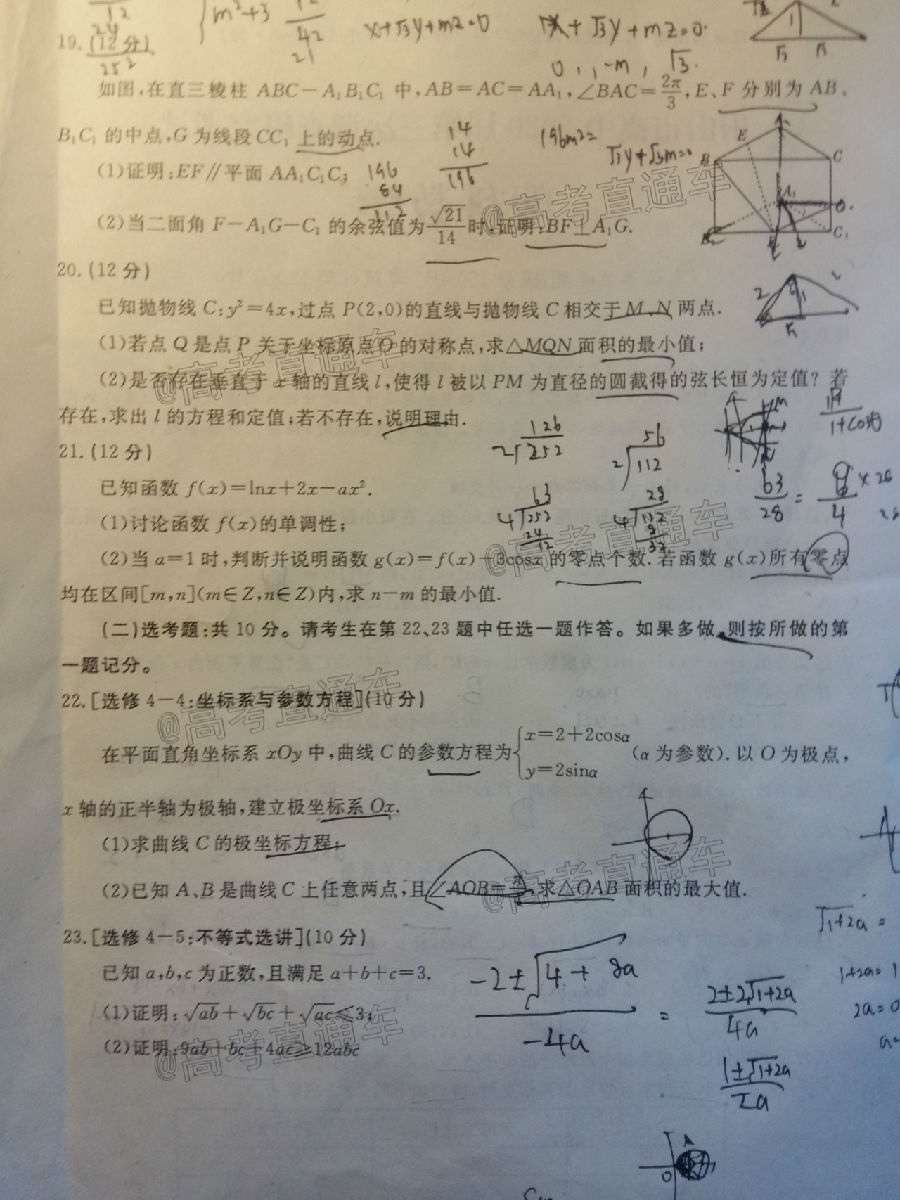 m²+3
x+√3y+mz=0
x+√3y+mz=0.
12
24
252
42
21
19.(12分)
0,1-m,√3.
如图,在直三棱柱 ABC-A₁B₁C₁ 中,AB=AC=AA₁,∠BAC=2π/3,E、F 分别为 AB、
B₁C₁ 的中点,G 为线段 CC₁ 上的动点.
14
14
196
196m²=
√3y+√3m=0
(1)证明:EF∥平面 AA₁C₁C;
196
84
112
(2)当二面角 F-A₁G-C₁ 的余弦值为√21/14时,证明:BF⊥A₁G.
@高考直通车
B
E
C
A₁
C₁
20.(12分)
已知抛物线 C:y²=4x,过点 P(2,0)的直线与抛物线 C 相交于 M、N 两点.
(1)若点 Q 是点 P 关于坐标原点 O 的对称点,求△MQN 面积的最小值;
(2)是否存在垂直于 x 轴的直线 l,使得 l 被以 PM 为直径的圆截得的弦长恒为定值? 若
@高考直通车
存在,求出 l 的方程和定值;若不存在,说明理由.
21.(12分)
126
2 252
56
2 112
已知函数 f(x)=lnx+2x-ax².
63
4 252
24
12
28
4 112
8
32
63/28=9/4
(1)讨论函数 f(x)的单调性;
@高考直通车
(2)当 a=1 时,判断并说明函数 g(x)=f(x)-3cosx 的零点个数.若函数 g(x)所有零点
均在区间[m,n](m∈Z,n∈Z)内,求 n-m 的最小值.
(二)选考题:共 10 分。请考生在第 22、23 题中任选一题作答。如果多做,则按所做的第
一题记分。
22.[选修 4-4:坐标系与参数方程](10分)
@高考直通车
在平面直角坐标系 xOy 中,曲线 C 的参数方程为{x=2+2cosα y=2sinα (α 为参数).以 O 为极点,
x 轴的正半轴为极轴,建立极坐标系 Ox.
(1)求曲线 C 的极坐标方程;
@高考直通车
(2)已知 A、B 是曲线 C 上任意两点,且∠AOB=,求△OAB 面积的最大值.
√1+2a =
23.[选修 4-5:不等式选讲](10分)
已知 a,b,c 为正数,且满足 a+b+c=3.
(1)证明:√ab+√bc+√ac≤3;
(2)证明:9ab+bc+4ac≥12abc
@高考直通车
-2±√4+8a
-4a
=
2±2√1+2a
4a
1±√1+2a
2a
1+2a=1
2a=0
a=